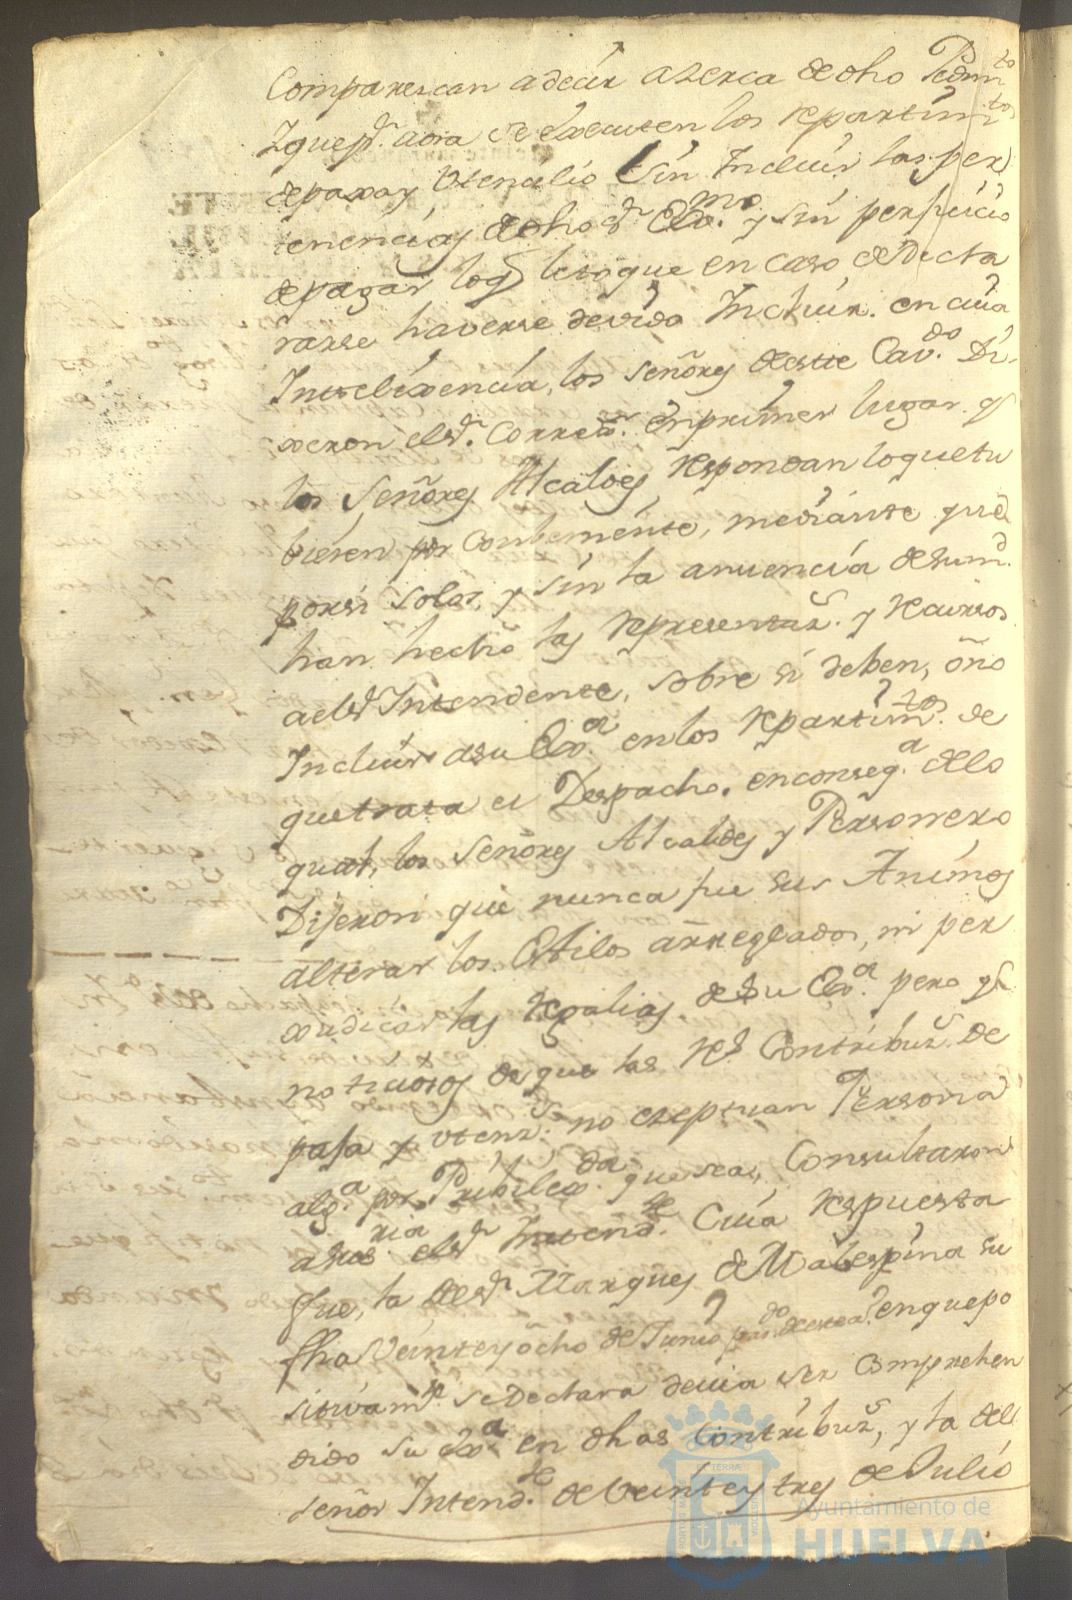 Comparescan a decir azerca de dho Pedim.to
Y que p.r aora se executen los repartim.tos
de paxa y Utencilio sin Incluir las per
tenencias de dho S.r Ex.mo y sin perjuicio
de pagar lo q lesoque en caso de Decla
rarse haverse devido Incluir. en cuia
Intelixencia, los señores deste Cav.do Di
xeron el S.r Correx.r en primer lugar q
los Señores Alcaldes respondan lo que tu
bieren por combeniente, mediante que
por si solos, y sin la anuencia de su md.
han hecho las representaz.s y recursos
a el S.r Intendente, sobre si deben, o no
Incluir a su Ex.a en los repartim.tos de
que trata el Despacho. en conseq.a de lo
qual, los Señores Alcaldes y Personero
Dijeron que nunca fue sus Animos
alterar los Estilos arreglados, ni per
xudicar las regalias de su Ex.a pero q
noticiosos de que las R.s Contribuz.s de
paja y utenz.s no exeptuan Persona
alg.a por Pribilex.da que sea, Consultaron
a el S.r Intend.te Cuia respuesta
fue, la del S.r Marques de Malespina su
fha Veinte y ocho de Junio en que po
sitivam.te se Declara devia ser comprehen
dido su Ex.a en dhas Contribuz.s, y la del
señor Intend.te de Veinte y tres de Julio
Ayuntamiento de
HUELVA